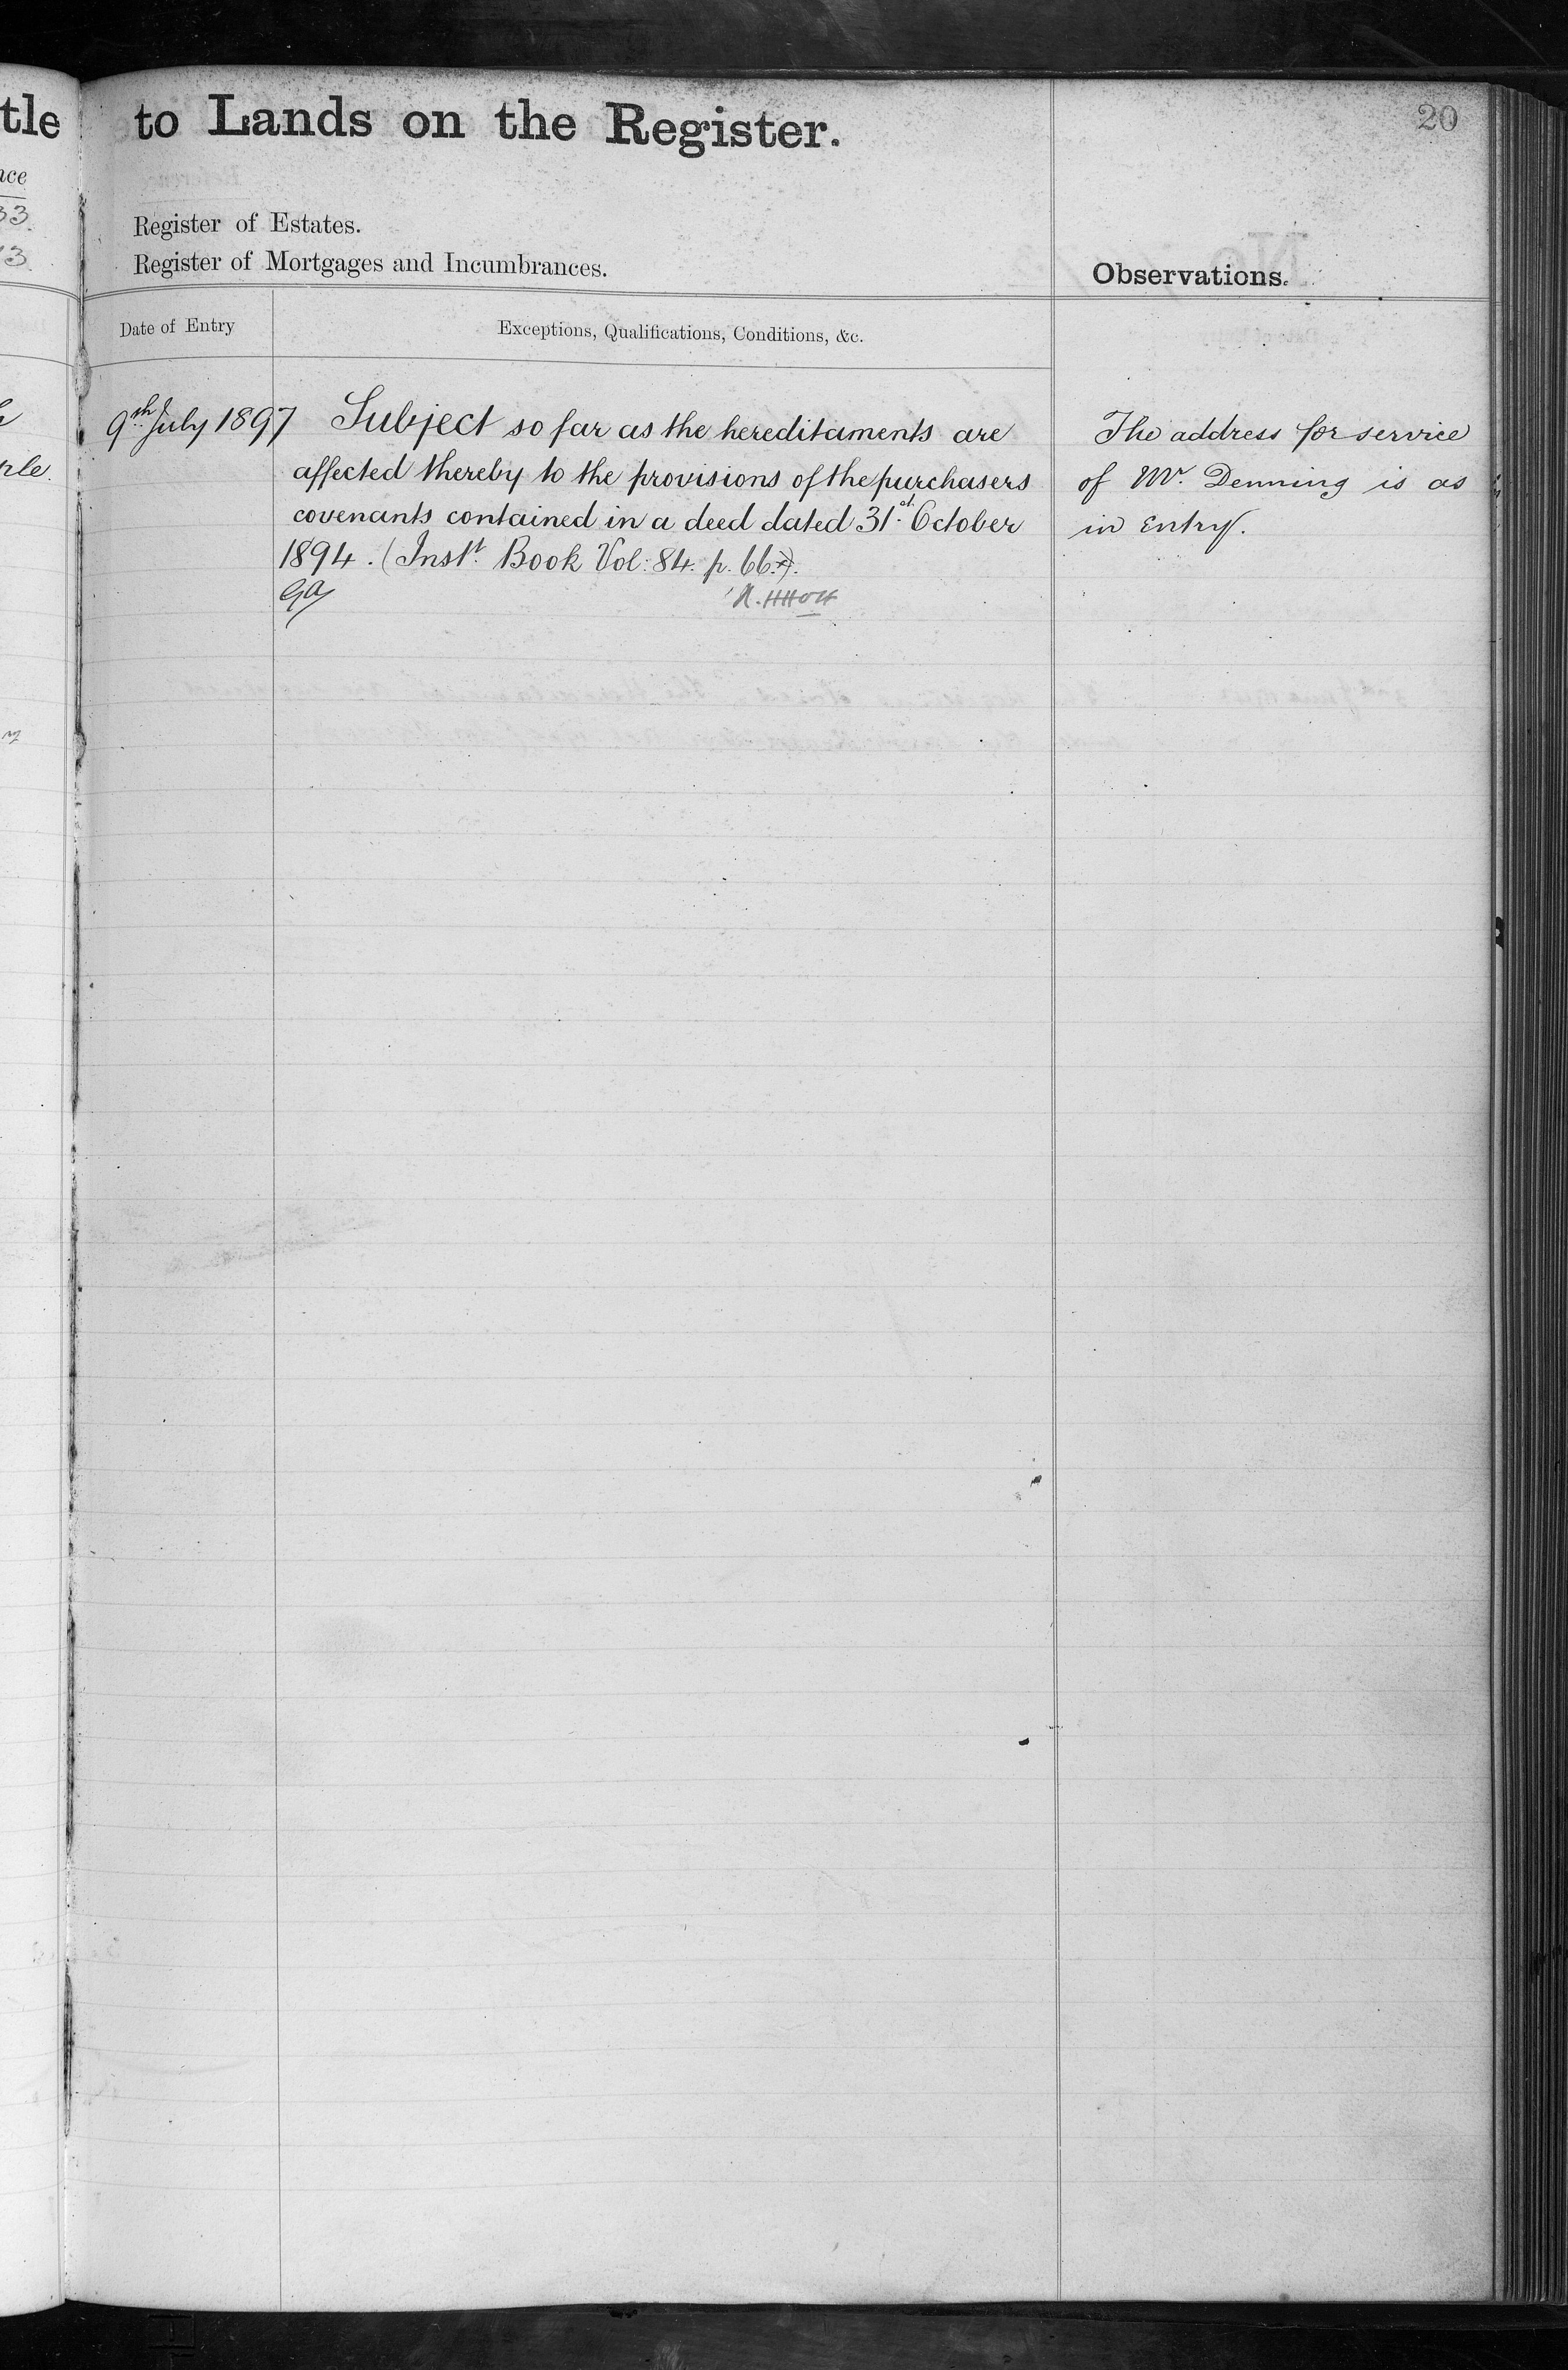 tle to Lands on the Register.
20
nce
33.
13.
Register of Estates.
Register of Mortgages and Incumbrances.
Observations.
Date of Entry
Exceptions, Qualifications, Conditions, &c.
9th July 1897
Subject so far as the hereditaments are
affected thereby to the provisions of the purchasers
covenants contained in a deed dated 31st October
1894. (Instt. Book Vol: 84. p. 66.)
The address for service
of Mr. Denning is as
in Entry.
ple.